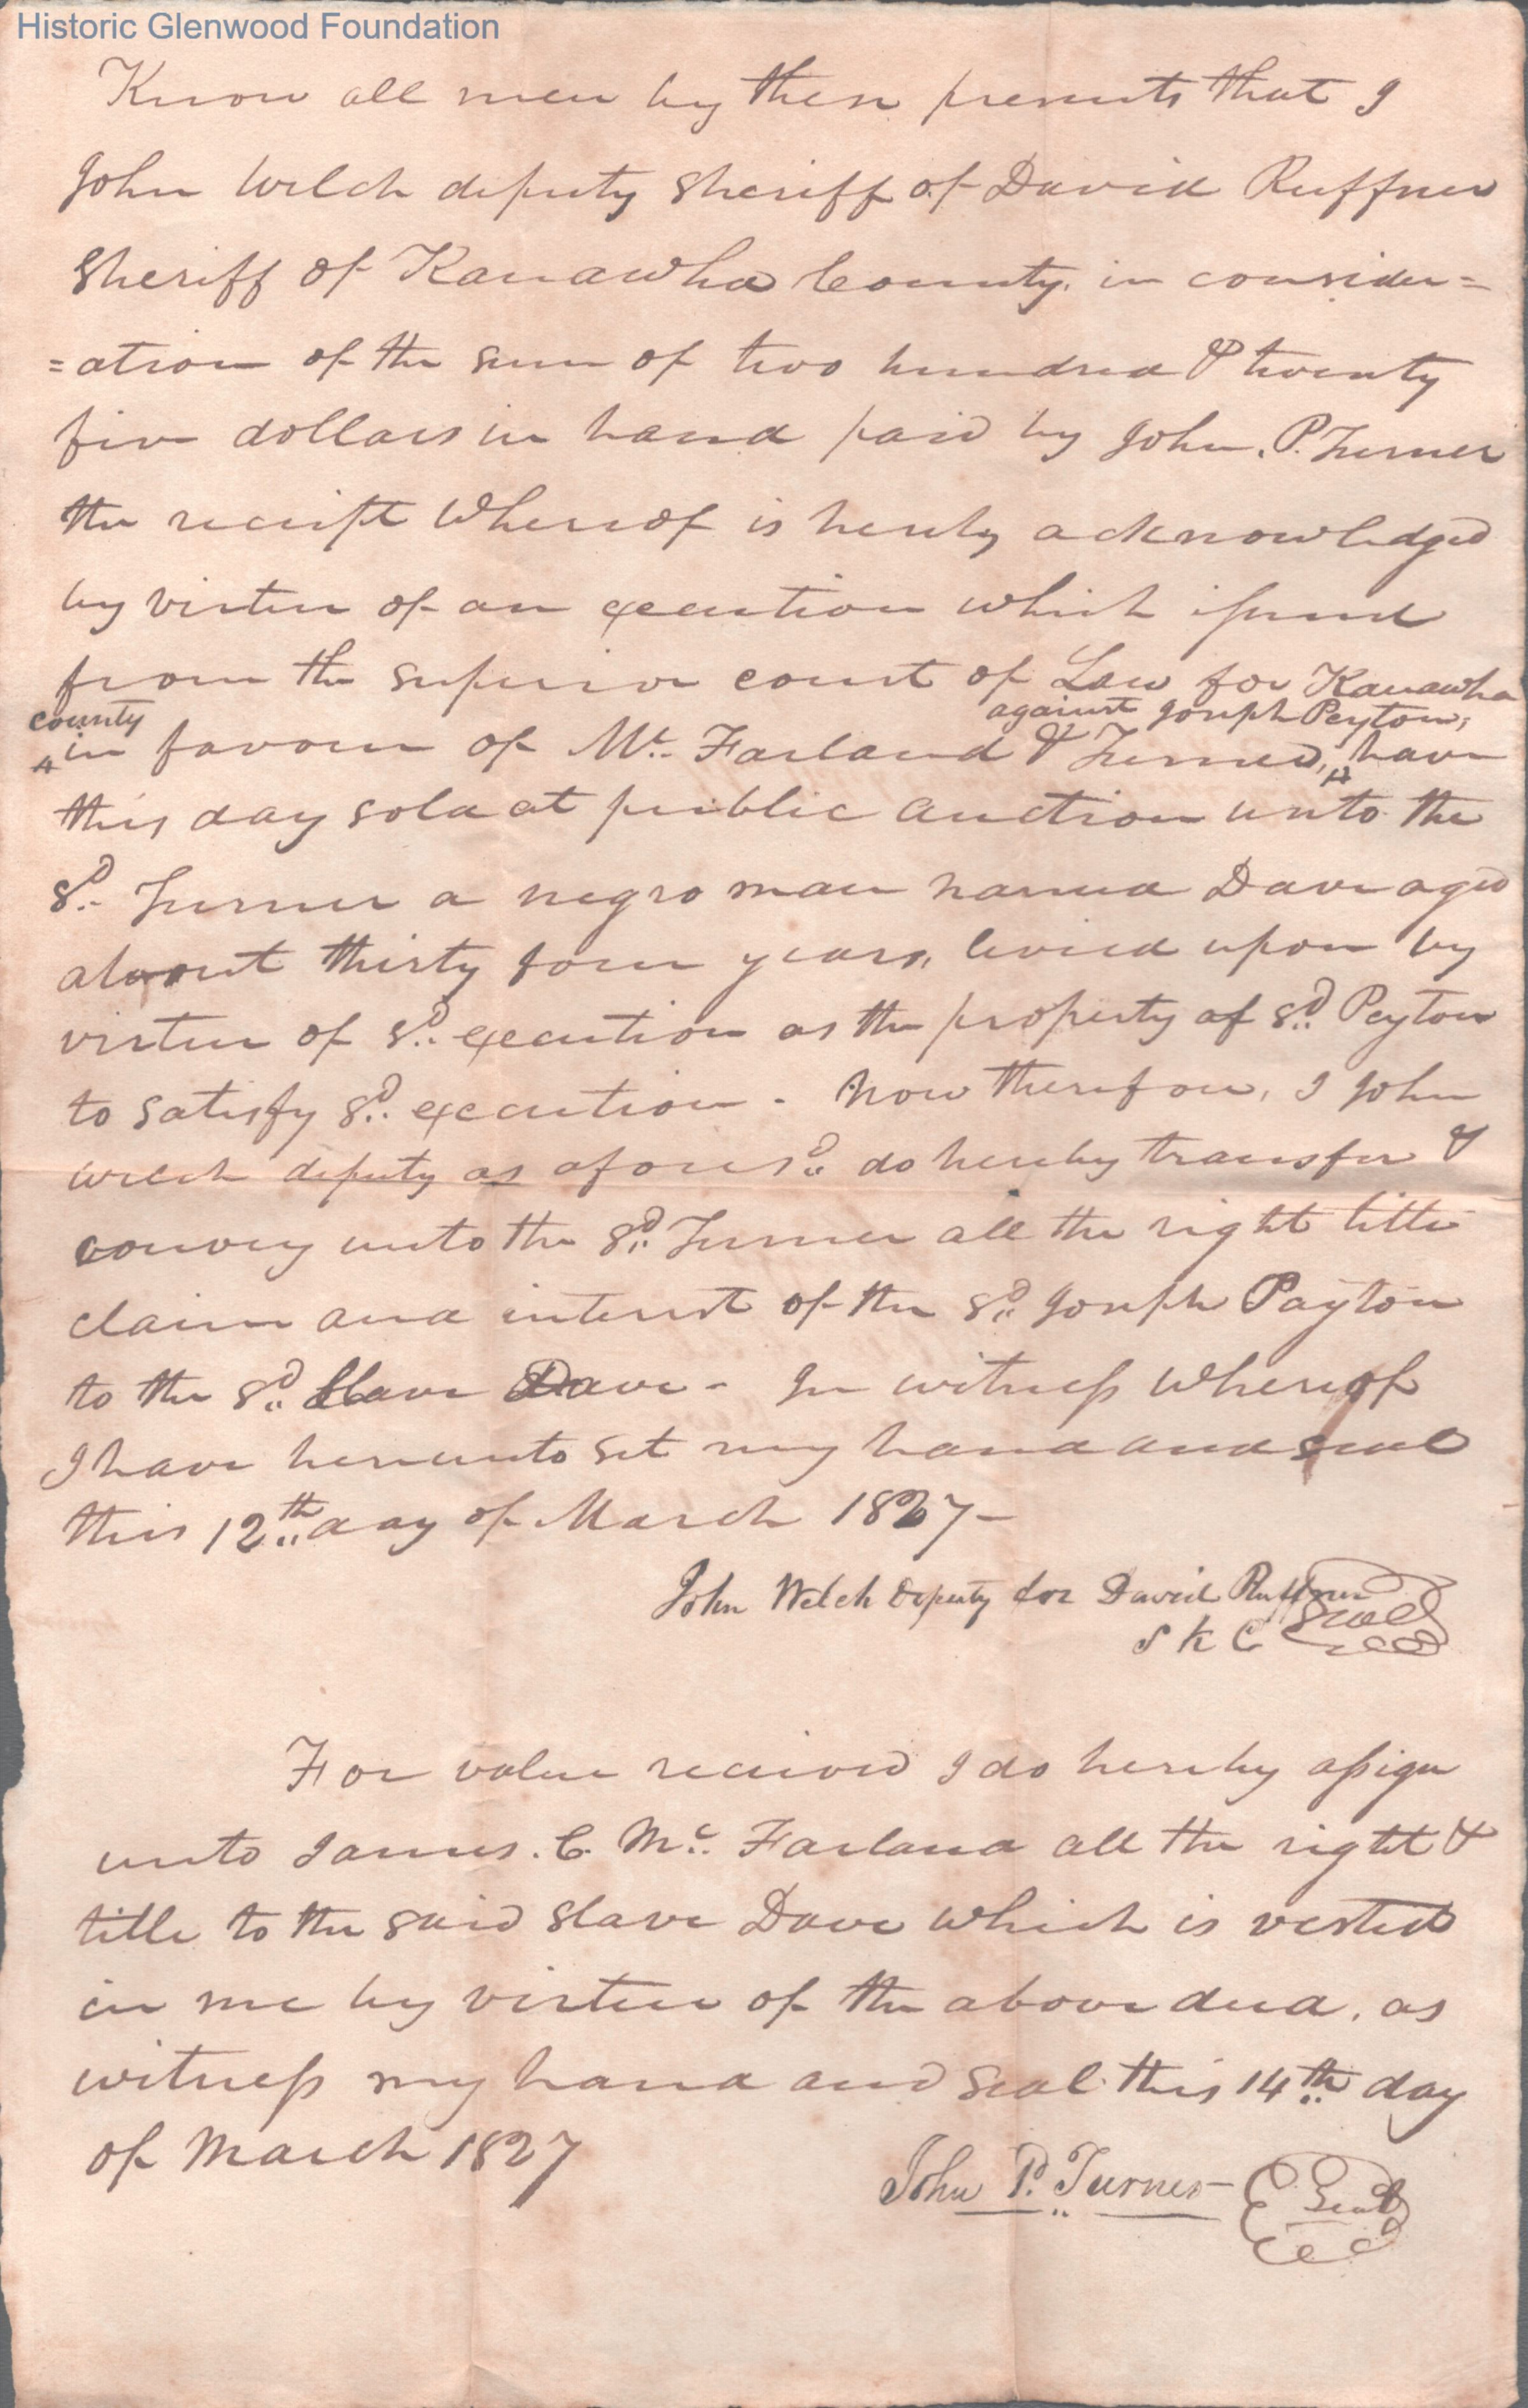 Historic Glenwood Foundation
Know all men by these presents that I
John Welch deputy Sheriff of David Ruffner
Sheriff of Kanawha County, in consider=
=ation of the sum of two hundred & twenty
five dollars in hand paid by John. P. Turner
the receipt Whereof is hereby acknowledged
by virtue of an execution which issued
from the superior court of Law for Kanawha
county against Joseph Peyton,
in favour of Mc. Farland & Turner, have
this day sold at public auction unto the
sd. Turner a negro man named Dave aged
about thirty four years, levied upon by
virtue of sd. execution as the property of sd. Peyton
to satisfy sd. execution - Now therefore, I John
Welch deputy as aforesd. do hereby transfer &
convey unto the sd. Turner all the right title
claim and interest of the sd. Joseph Payton
to the sd. Slave Dave - In witness Whereof
I have hereunto set my hand and seal
this 12th. day of March 1827 -
John Welch Deputy for David Ruffner
S K C Seal
For value received I do hereby assign
unto James. C. Mc. Farland all the right &
title to the said slave Dave which is vested
in me by virtue of the above deed. as
witness my hand and seal this 14th. day
of March 1827
John P. Turner - Seal